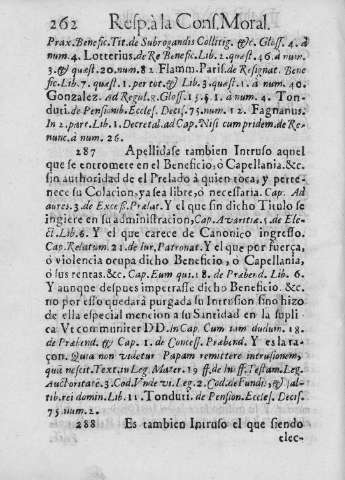 262 Resp. à la Cons. Moral.
Prax. Benefic. Tit. de Subrogandis Collitig. &c. Gloss. 4. à
num. 4. Lotterius. de Re Benefic. Lib. 2. quæst. 46. à num.
3. & quæst. 20. num. 82. Flamm. Paris. de Resignat. Bene
fic. Lib. 7. quæst. 1. per tot. & Lib. 3. quæst. 1. à num. 40.
Gonzalez. Ad Regul. 8. Gloss. 15. §. 1. à num. 4. Ton-
duti. de Pensionib. Eccles. Decis. 75. num. 12. Fagnanus.
In 2. part. Lib. 1. Decretal. ad Cap. Nisi cum pridem. de Re-
nunc. à num. 26.
287 Apellidase tambien Intruso aquel
que se entromete en el Beneficio, ò Capellania. &c.
sin authoridad de el Prelado à quien toca, y perte-
nece su Colacion, ya sea libre, ò necessaria. Cap. Ad
aures. 3. de Excess. Prælat. Y el que sin dicho Titulo se
ingiere en su administracion, Cap. Avaritiæ. 5. de Ele-
ct. Lib. 6. Y el que carece de Canonico ingresso.
Cap. Relatum. 21. de Iur. Patronat. Y el que por fuerça,
ò violencia ocupa dicho Beneficio, ò Capellania,
ò sus rentas. &c. Cap. Eum qui. 18. de Præbend. Lib. 6.
Y aunque despues impetrasse dicho Beneficio. &c.
no por esso quedarà purgada su Intrusion sino hizo
de ella especial mencion a su Santidad en la supli
ca: Vt communiter DD. in Cap. Cum tam dudum. 18.
de Præbend. & Cap. 1. de Concess. Præbend. Y es la ra-
çon. Quia non videtur Papam remittere intrusionem,
quã nescit. Text. in Leg. Mater. 19 ff. de Inoff. Testam. Leg.
Auctoritate. 3. Cod. Vnde vi. Leg. 2. Cod. de Fundis, & sal-
tib. rei domin. Lib. 11. Tonduti. de Pension. Eccles. Decis.
75 num. 2.
288 Es tambien Intruso el que siendo
elec-